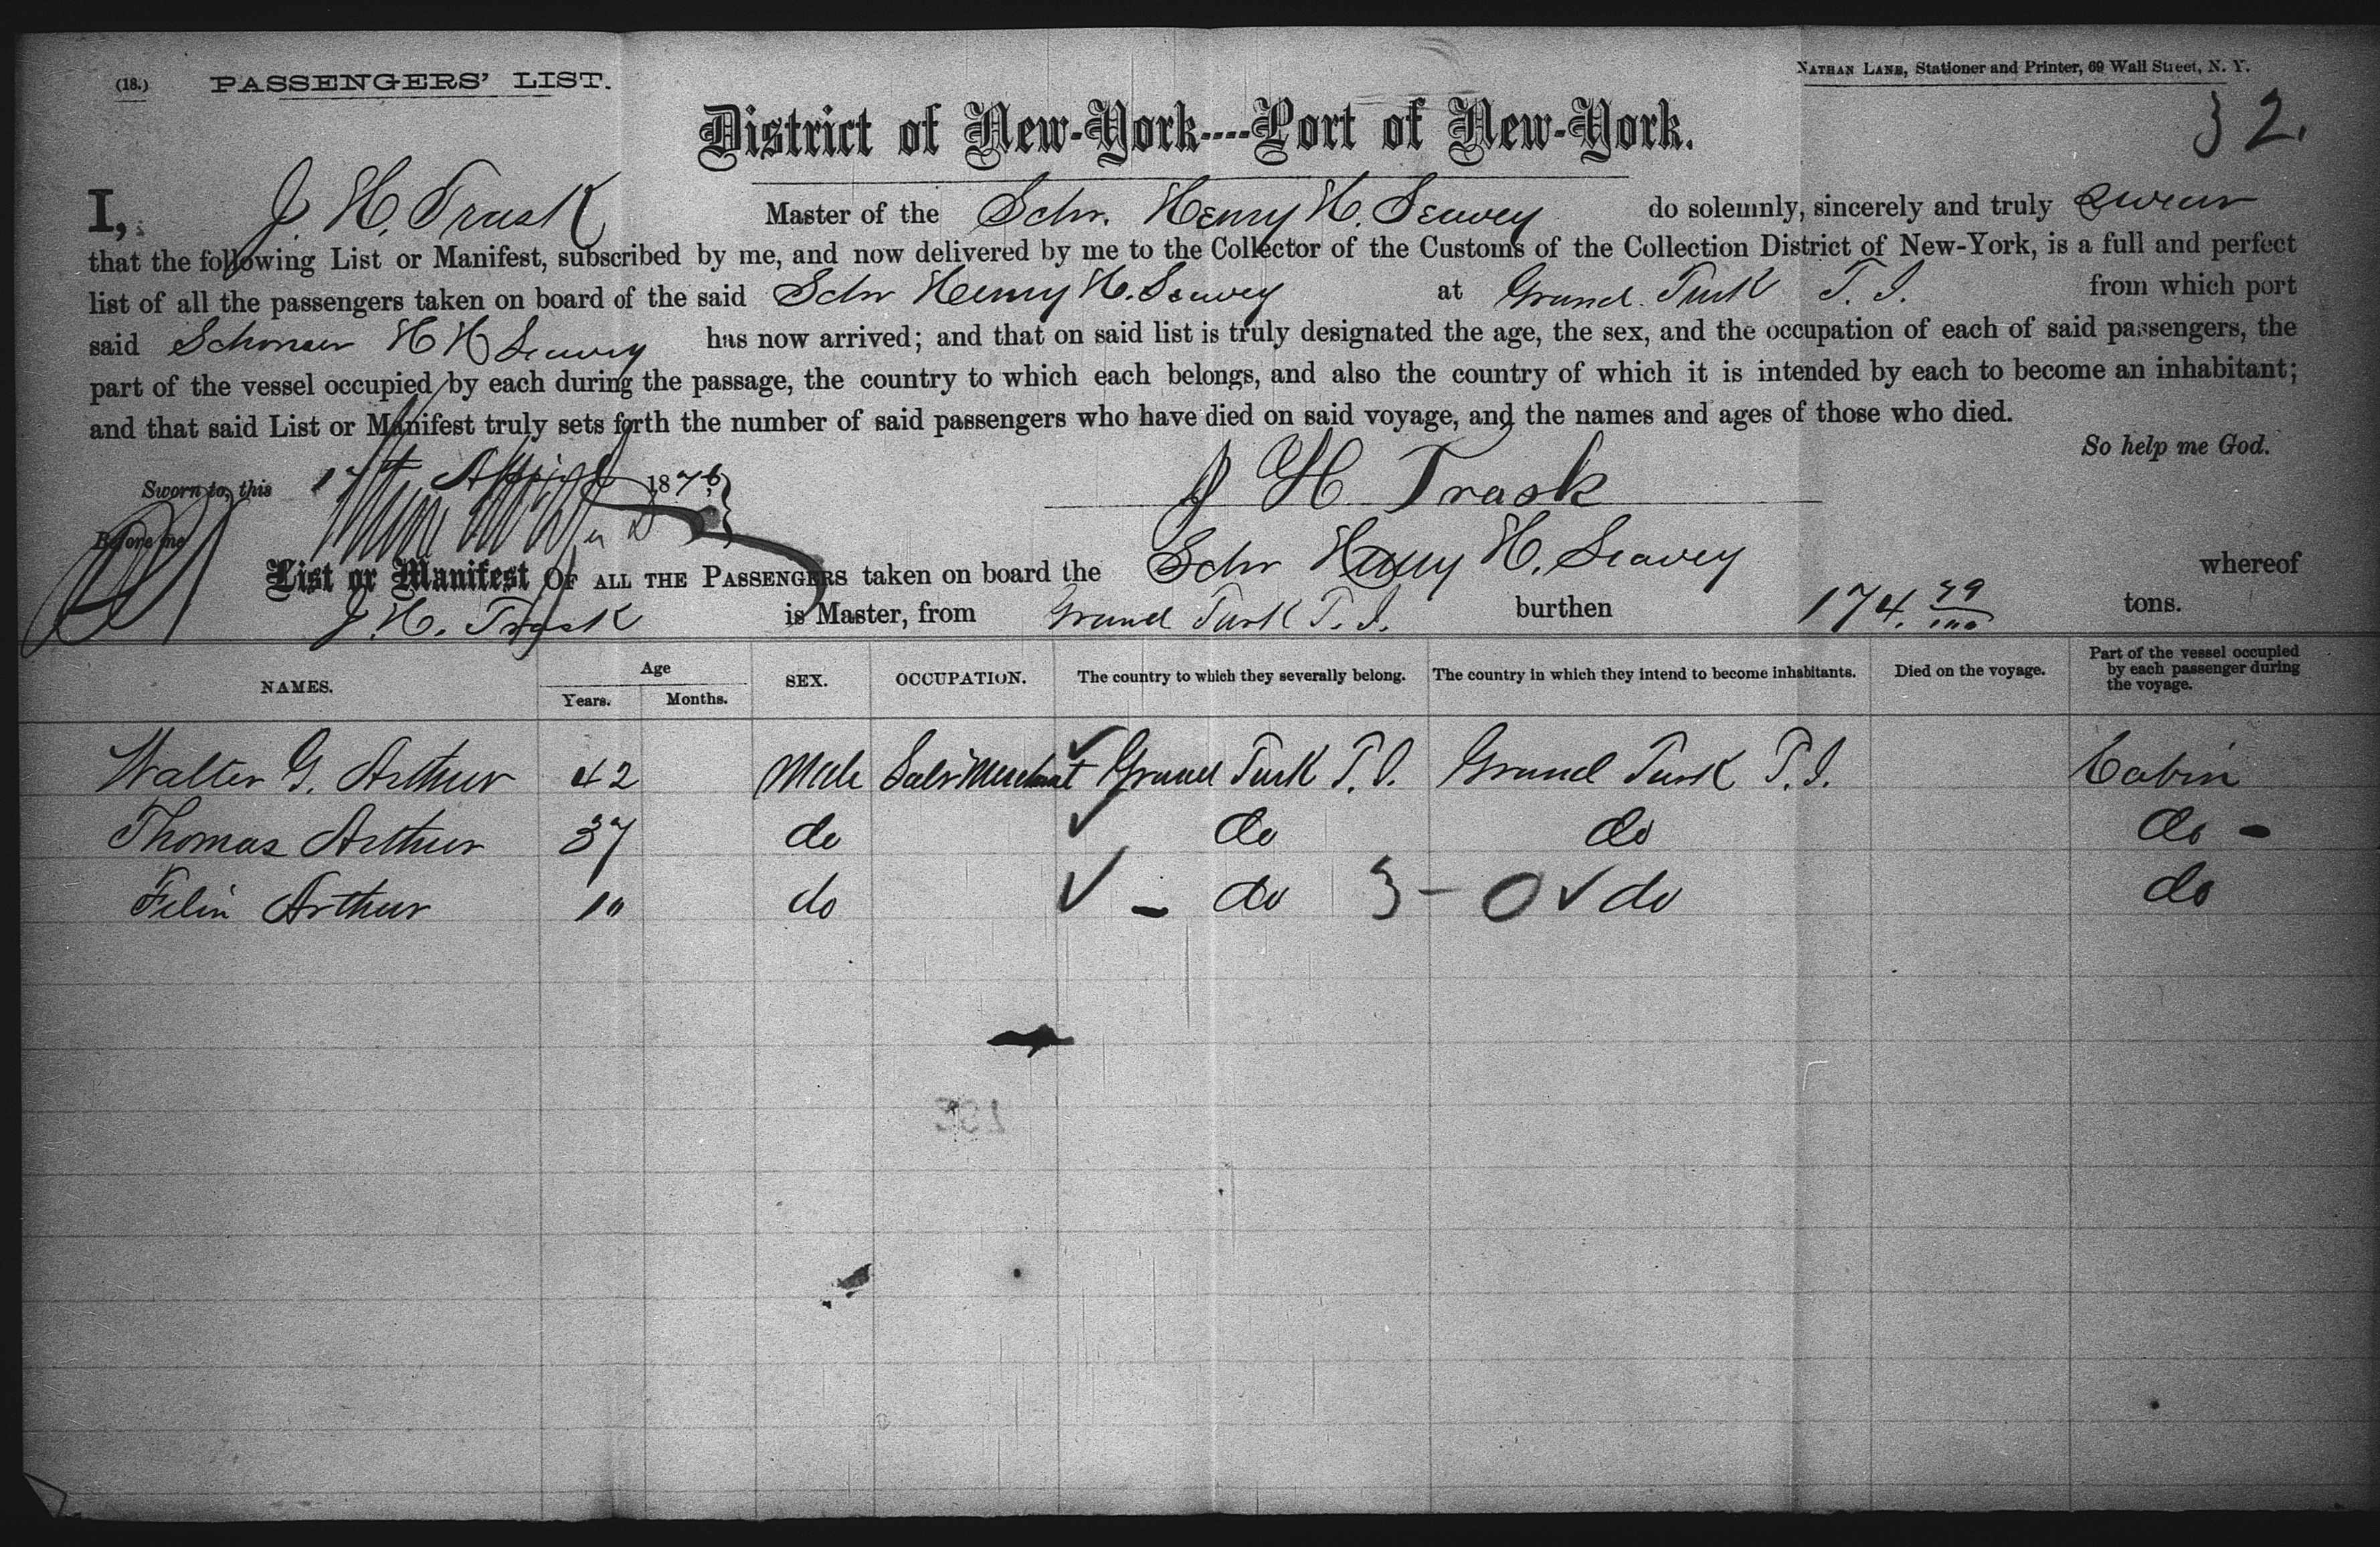 (18.) PASSENGERS' LIST.
NATHAN LANE, Stationer and Printer, 69 Wall Street, N. Y.
32.
District of New-York----Port of New-York.
I, J. H. Trask Master of the Schr. Henry H. Seavey do solemnly, sincerely and truly swear
that the following List or Manifest, subscribed by me, and now delivered by me to the Collector of the Customs of the Collection District of New-York, is a full and perfect
list of all the passengers taken on board of the said Schr Henry H. Seavey at Grand Turk T. I. from which port
said Schoner H H Seavey has now arrived; and that on said list is truly designated the age, the sex, and the occupation of each of said passengers, the
part of the vessel occupied by each during the passage, the country to which each belongs, and also the country of which it is intended by each to become an inhabitant;
and that said List or Manifest truly sets forth the number of said passengers who have died on said voyage, and the names and ages of those who died.
So help me God.
Sworn to, this 17th April 1876
J H Trask
Before me
List or Manifest OF ALL THE PASSENGERS taken on board the Schr Henry H. Seavey whereof
J. H. Trask is Master, from Grand Turk T. I. burthen 174. 39/100 tons.
NAMES. Age Years. Months. SEX. OCCUPATION. The country to which they severally belong. The country in which they intend to become inhabitants. Died on the voyage. Part of the vessel occupied by each passenger during the voyage.
Walter G. Arthur 42 Male Merchant ✓ Grand Turk T. I. Grand Turk T. I. Cabin
Thomas Arthur 37 do ✓ do do do -
Arthur 10 do ✓ - do 3 - 0 ✓ do do